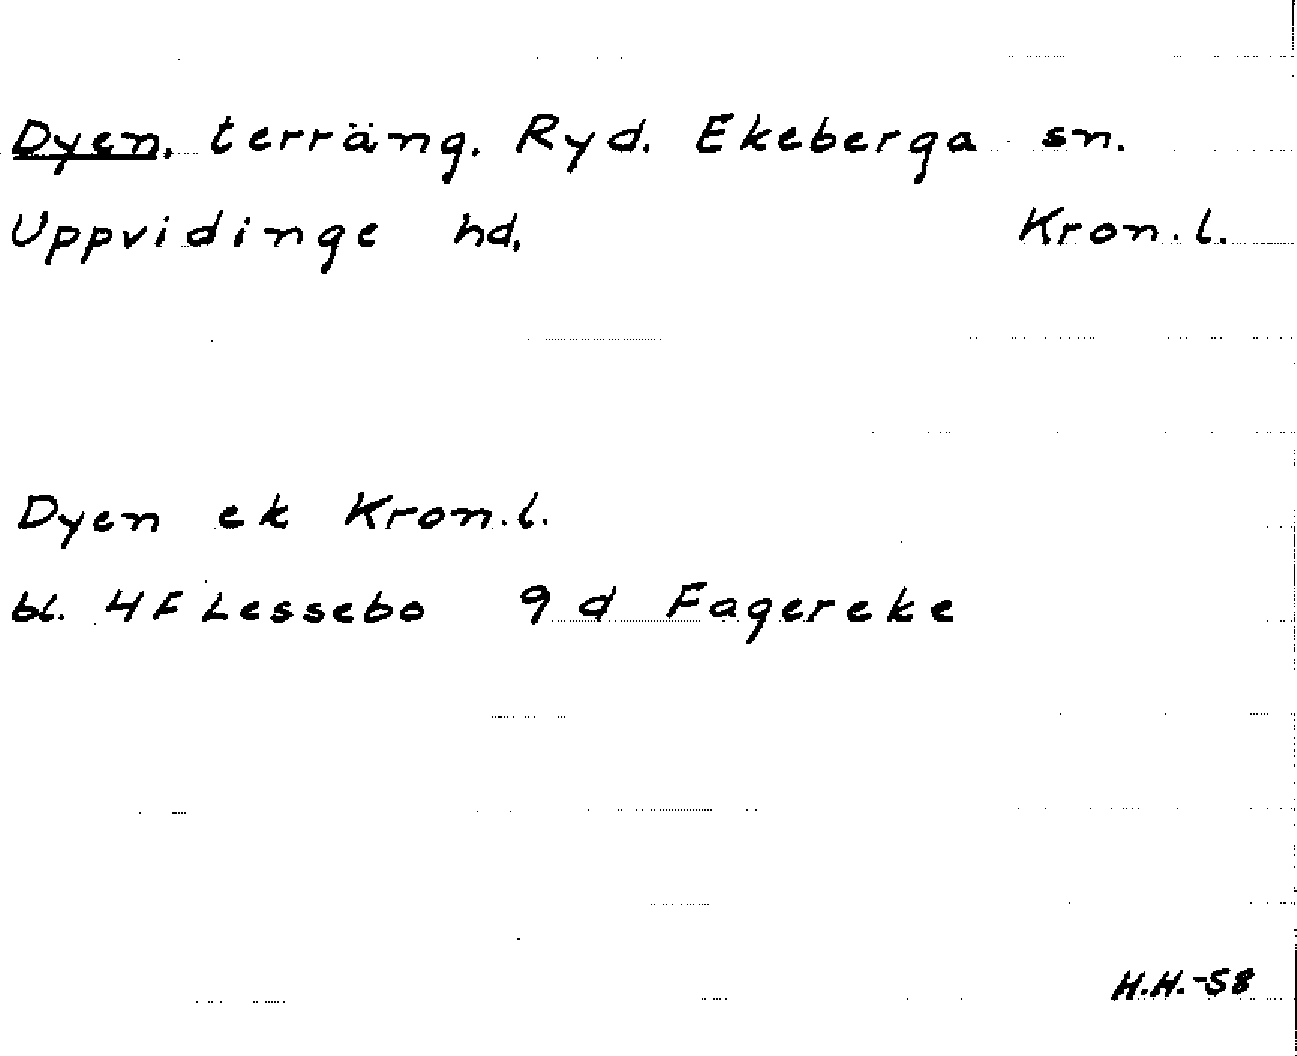 Dyen, terräng. Ryd. Ekeberga sn.
Uppvidinge hd, Kron.l.
Dyen ek Kron.l.
bl. 4F Lessebo 9 d Fagereke
H.H.-58